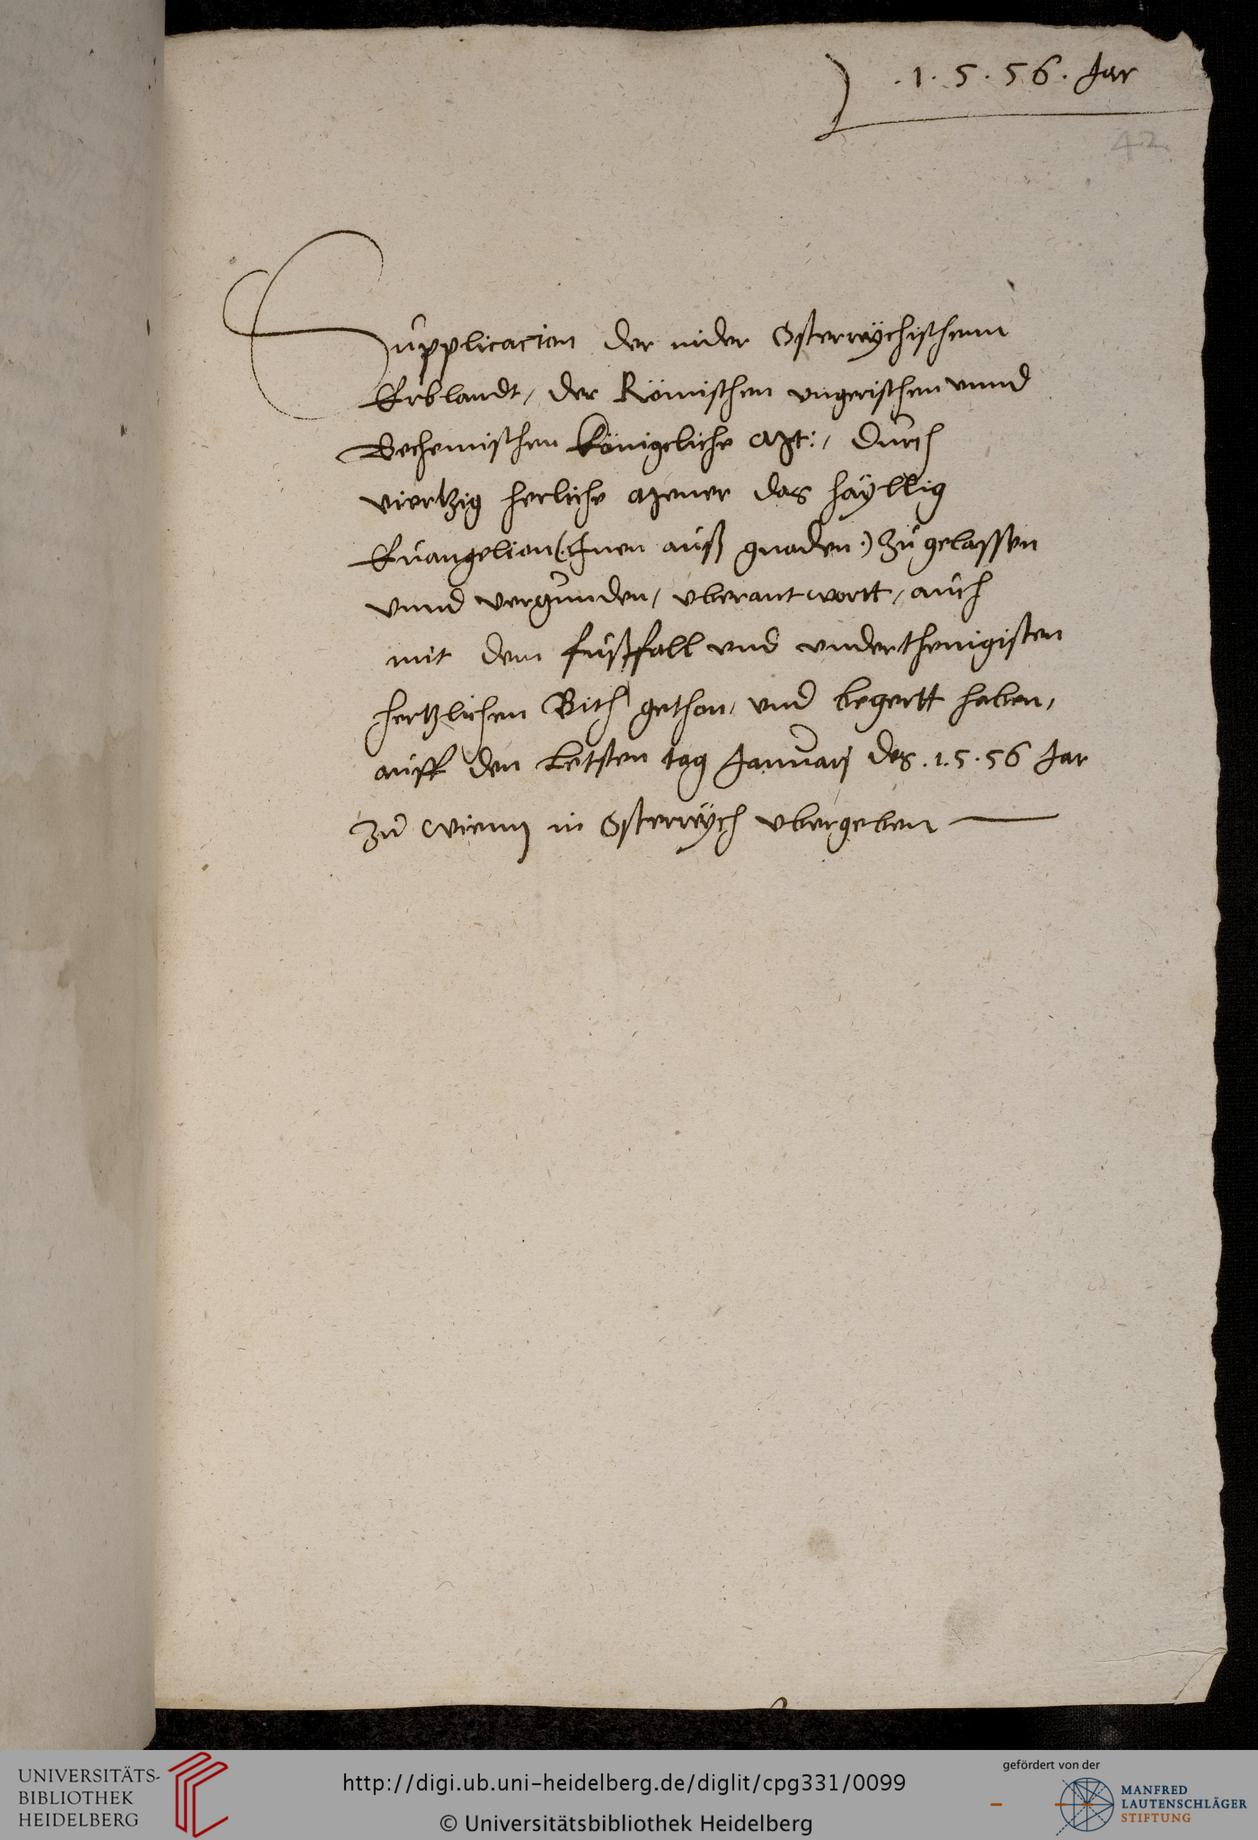 .1.5.56. Jar
42
Supplication der nider Osterreÿchischenn
Erblandt, der Römischen vngerischen vnnd
Behemischen Königeliche Mt:, durch
viertzig herliche Mener das haÿllig
Euangelion (.Jnen auß gnaden.) zu gelassen
vnnd vergunden, vberantwortt, auch
mit dem fußfall vnd vnderthenigisten
hertzlichen Bith gethon, vnd begertt haben,
auff den letsten tag Januarj des .1.5.56 Jar
zu Wienn in Osterreÿch vbergeben
UNIVERSITÄTS-
BIBLIOTHEK
HEIDELBERG
http://digi.ub.uni-heidelberg.de/diglit/cpg331/0099
© Universitätsbibliothek Heidelberg
gefördert von der
MANFRED
LAUTENSCHLÄGER
STIFTUNG